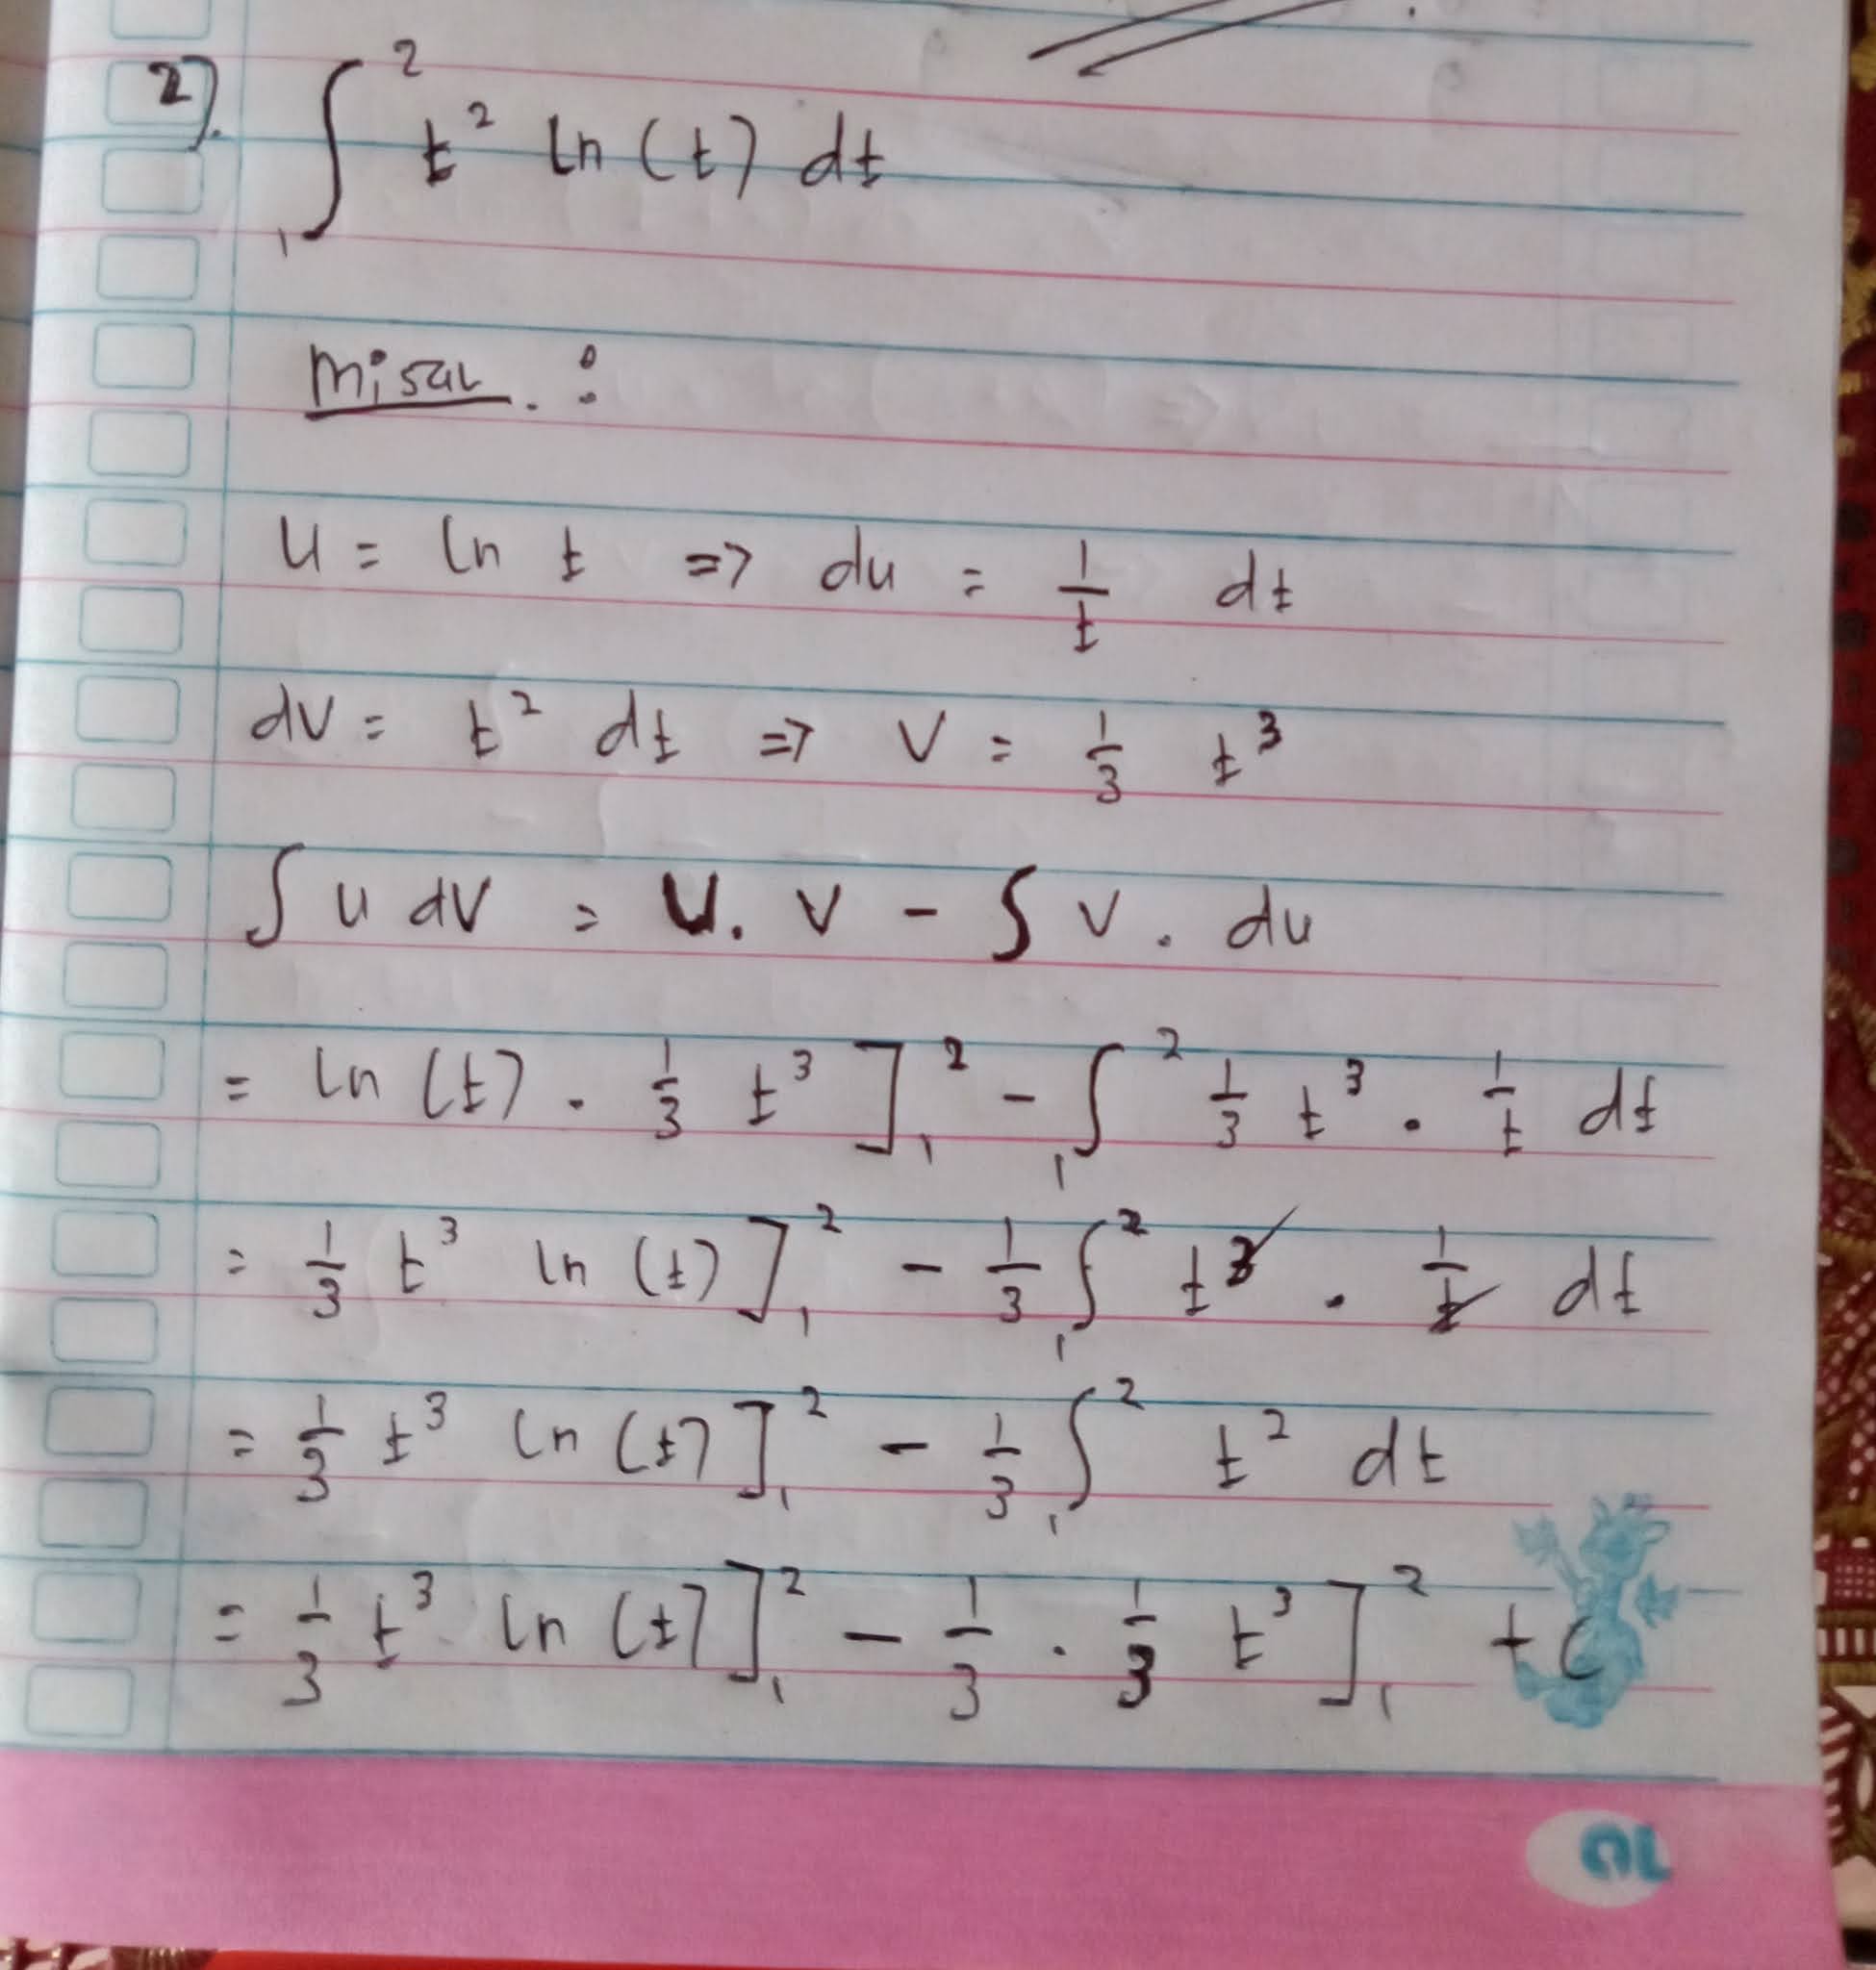 2). ∫₁² t² ln (t) dt
Misal :
u = ln t => du = 1/t dt
dv = t² dt => v = 1/3 t³
∫ u dv = u. v - ∫ v . du
= ln (t) . 1/3 t³ ]₁² - ∫₁² 1/3 t³ . 1/t dt
= 1/3 t³ ln (t) ]₁² - 1/3 ∫₁² t³ . 1/t dt
= 1/3 t³ ln (t) ]₁² - 1/3 ∫₁² t² dt
= 1/3 t³ ln (t) ]₁² - 1/3 . 1/3 t³ ]₁² + C